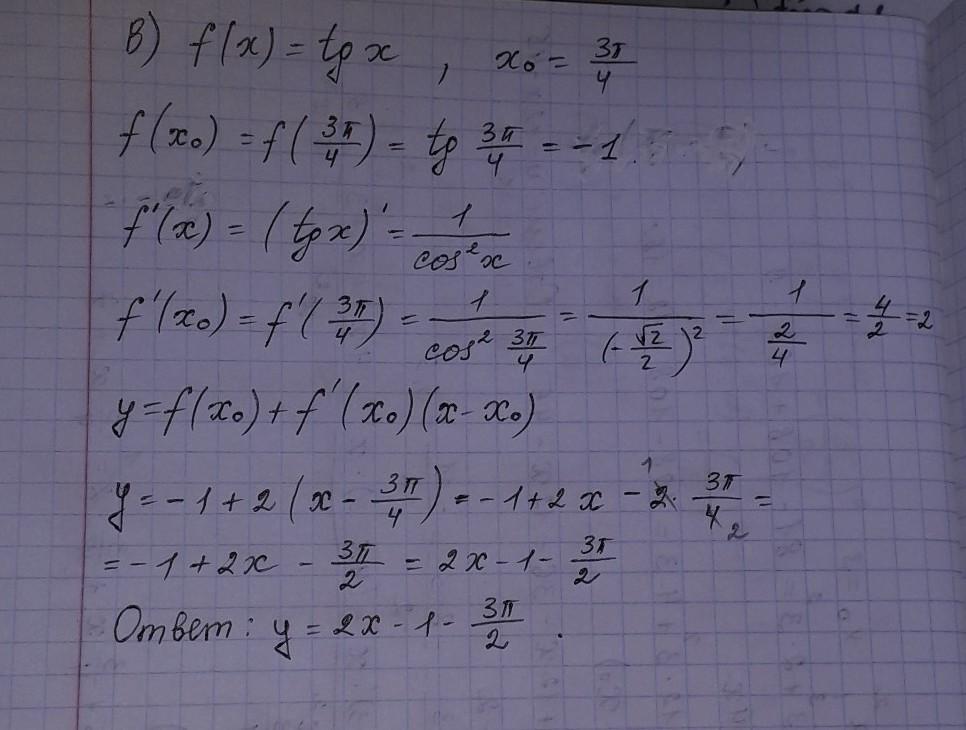 в) f(x) = tg x , x₀ = 3π/4
f(x₀) = f(3π/4) = tg 3π/4 = -1
f'(x) = (tg x)' = 1/cos² x
f'(x₀) = f'(3π/4) = 1/(cos² 3π/4) = 1/(-√2/2)² = 1/(2/4) = 4/2 = 2
y = f(x₀) + f'(x₀)(x - x₀)
y = -1 + 2(x - 3π/4) = -1 + 2x - 2̸¹ · 3π/4̸₂ =
= -1 + 2x - 3π/2 = 2x - 1 - 3π/2
Ответ: y = 2x - 1 - 3π/2 .